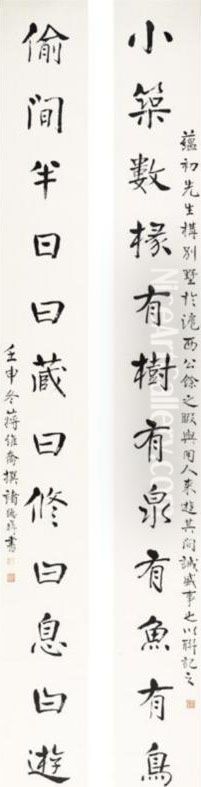 蘊初先生構別墅於滬西公餘之暇與同人來遊其間誠盛事也以聯記之
小築數椽有樹有泉有魚有鳥
偷閒半日曰藏曰修曰息曰遊
壬申冬蔣維喬撰褚德彝書
NiceArtGallery.com